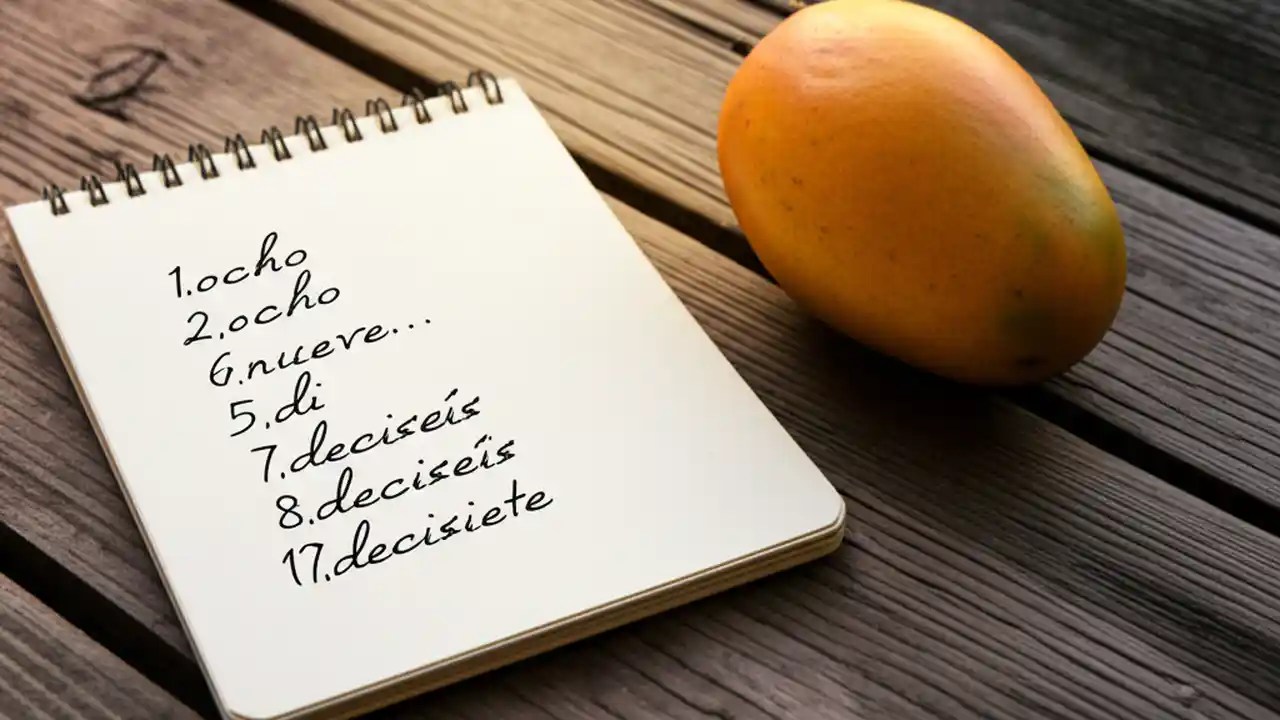 1.ocho
2.ocho
6.nueve...
5.di
7.deciseís
8.deciseís
17.decisiete